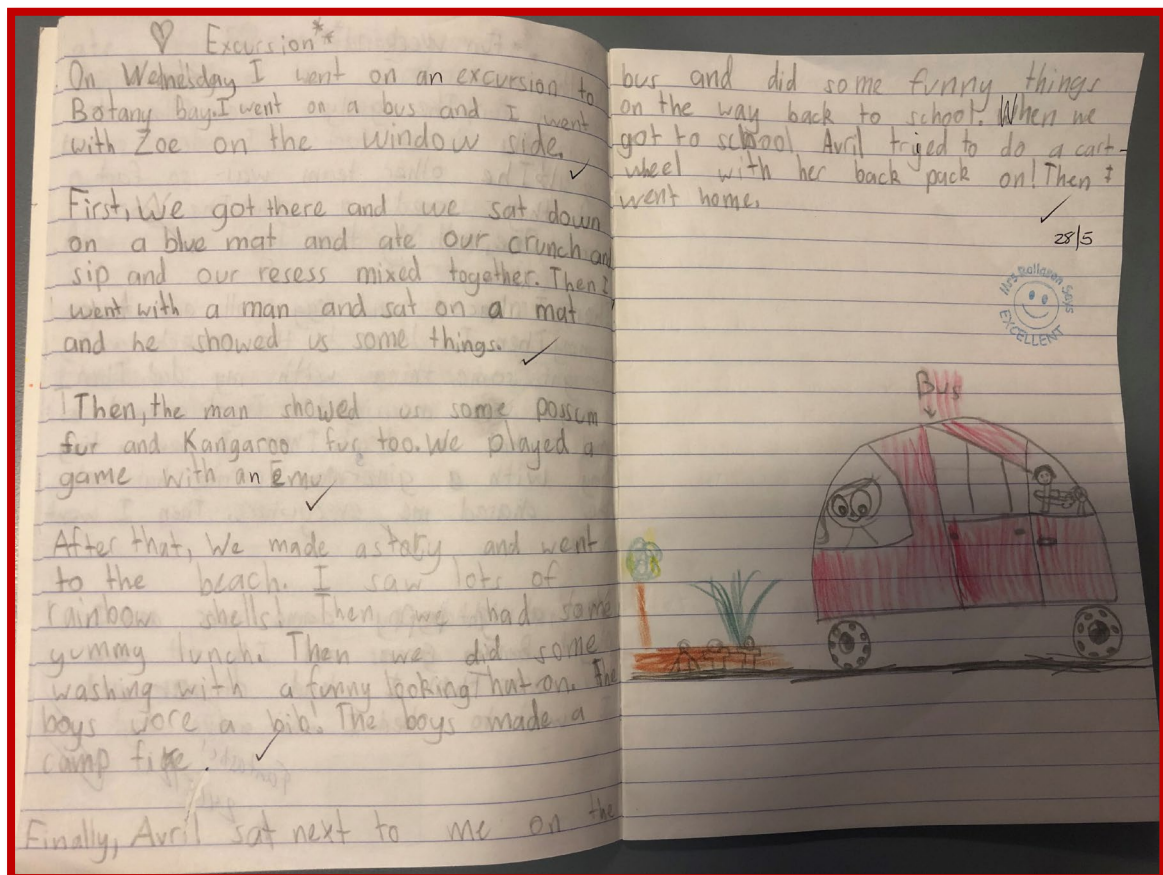 ♡ Excursion**
On Wednesday I went on an excursion to
Botany bay. I went on a bus and I went
with Zoe on the window side.
First, We got there and we sat down
on a blue mat and ate our crunch and
sip and our resess mixed together. Then I
went with a man and sat on a mat
and he showed us some things.
Then, the man showed us some possum
fur and Kangaroo fur too. We played a
game with an Emu
After that, We made a and went
to the beach. I saw lots of
rainbow shells! Then we had some
yummy lunch. Then we did some
washing with a funny looking hat on. The
boys wore a bib! The boys made a
camp fire.
Finally, Avril sat next to me on the
bus and did some funny things
on the way back to school. When we
got to school Avril tryed to do a cart-
wheel with her back pack on! Then I
went home.
28/5
Mrs Says
EXCELLENT
Bus